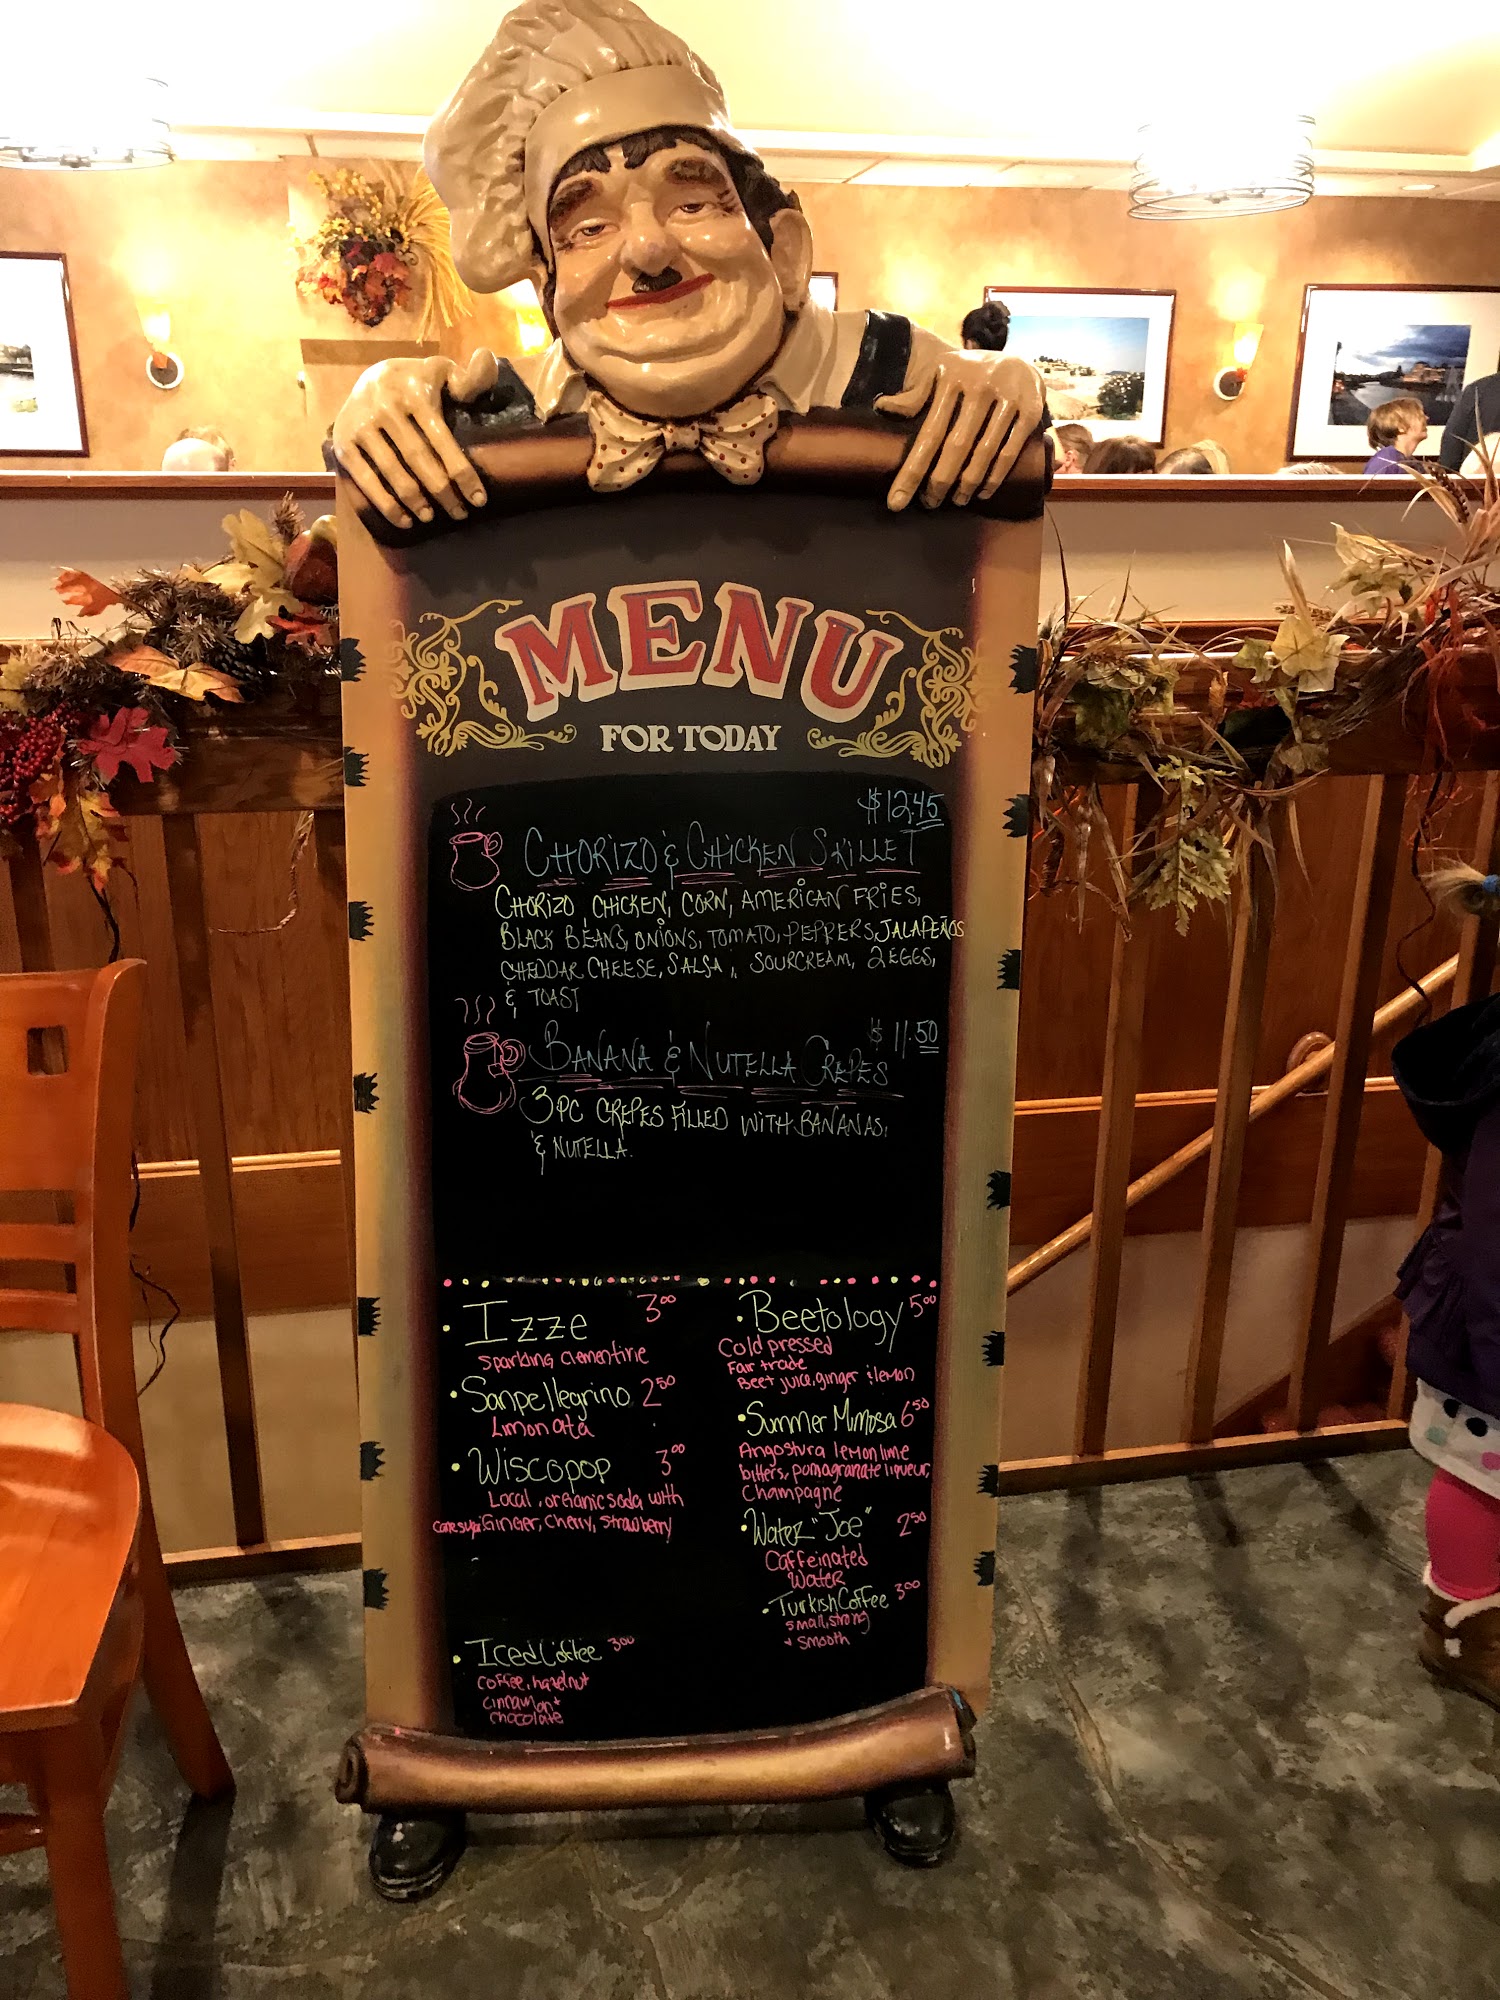 MENU
FOR TODAY
$12.45
CHORIZO & CHICKEN SKILLET
CHORIZO, CHICKEN, CORN, AMERICAN FRIES,
BLACK BEANS, ONIONS, TOMATO, PEPPERS, JALAPEÑOS
CHEDDAR CHEESE, SALSA, SOURCREAM, 2 EGGS,
& TOAST
$11.50
BANANA & NUTELLA CREPES
3PC CREPES FILLED WITH BANANAS,
& NUTELLA.
• Izze 3⁰⁰
Sparkling clementine
• Sanpellegrino 2⁵⁰
Limonata
• Wiscopop 3⁰⁰
Local, organic soda with
cane sugar Ginger, Cherry, Strawberry
• Iced Coffee 3⁰⁰
Coffee, hazelnut
cinnamon +
chocolate
• Beetology 5⁰⁰
Cold pressed
Fair trade
Beet juice, ginger & lemon
• Summer Mimosa 6⁵⁰
Angostura lemon lime
bitters, pomagranate liqueur,
Champagne
• Water "Joe" 2⁵⁰
Caffeinated
Water
• Turkish Coffee 3⁰⁰
small, strong
+ smooth